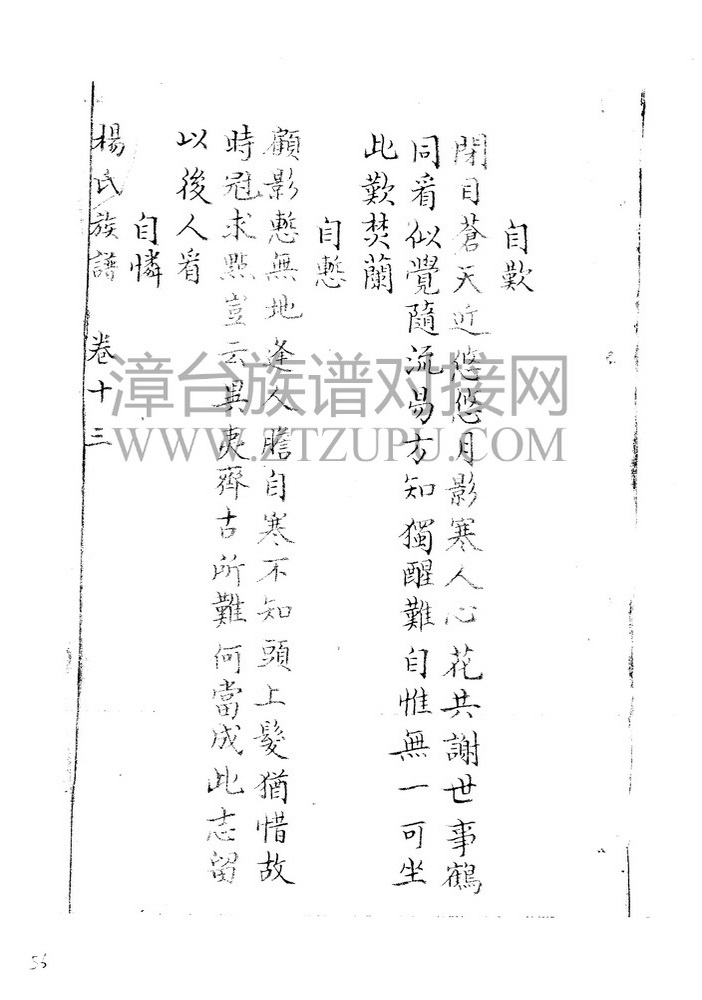 自歎
閉目蒼天近悠悠月影寒人心花共謝世事鶴
同看似覺隨流易方知獨醒難自惟無一可坐
此歎焚蘭
自慙
顧影慙無地逢人膽自寒不知頭上髮猶惜故
時冠求點豈云異夷齊古所難何當成此志留
以後人看
自憐
楊氏族譜 卷十三
漳台族谱对接网
WWW.ZTZUPU.COM
56